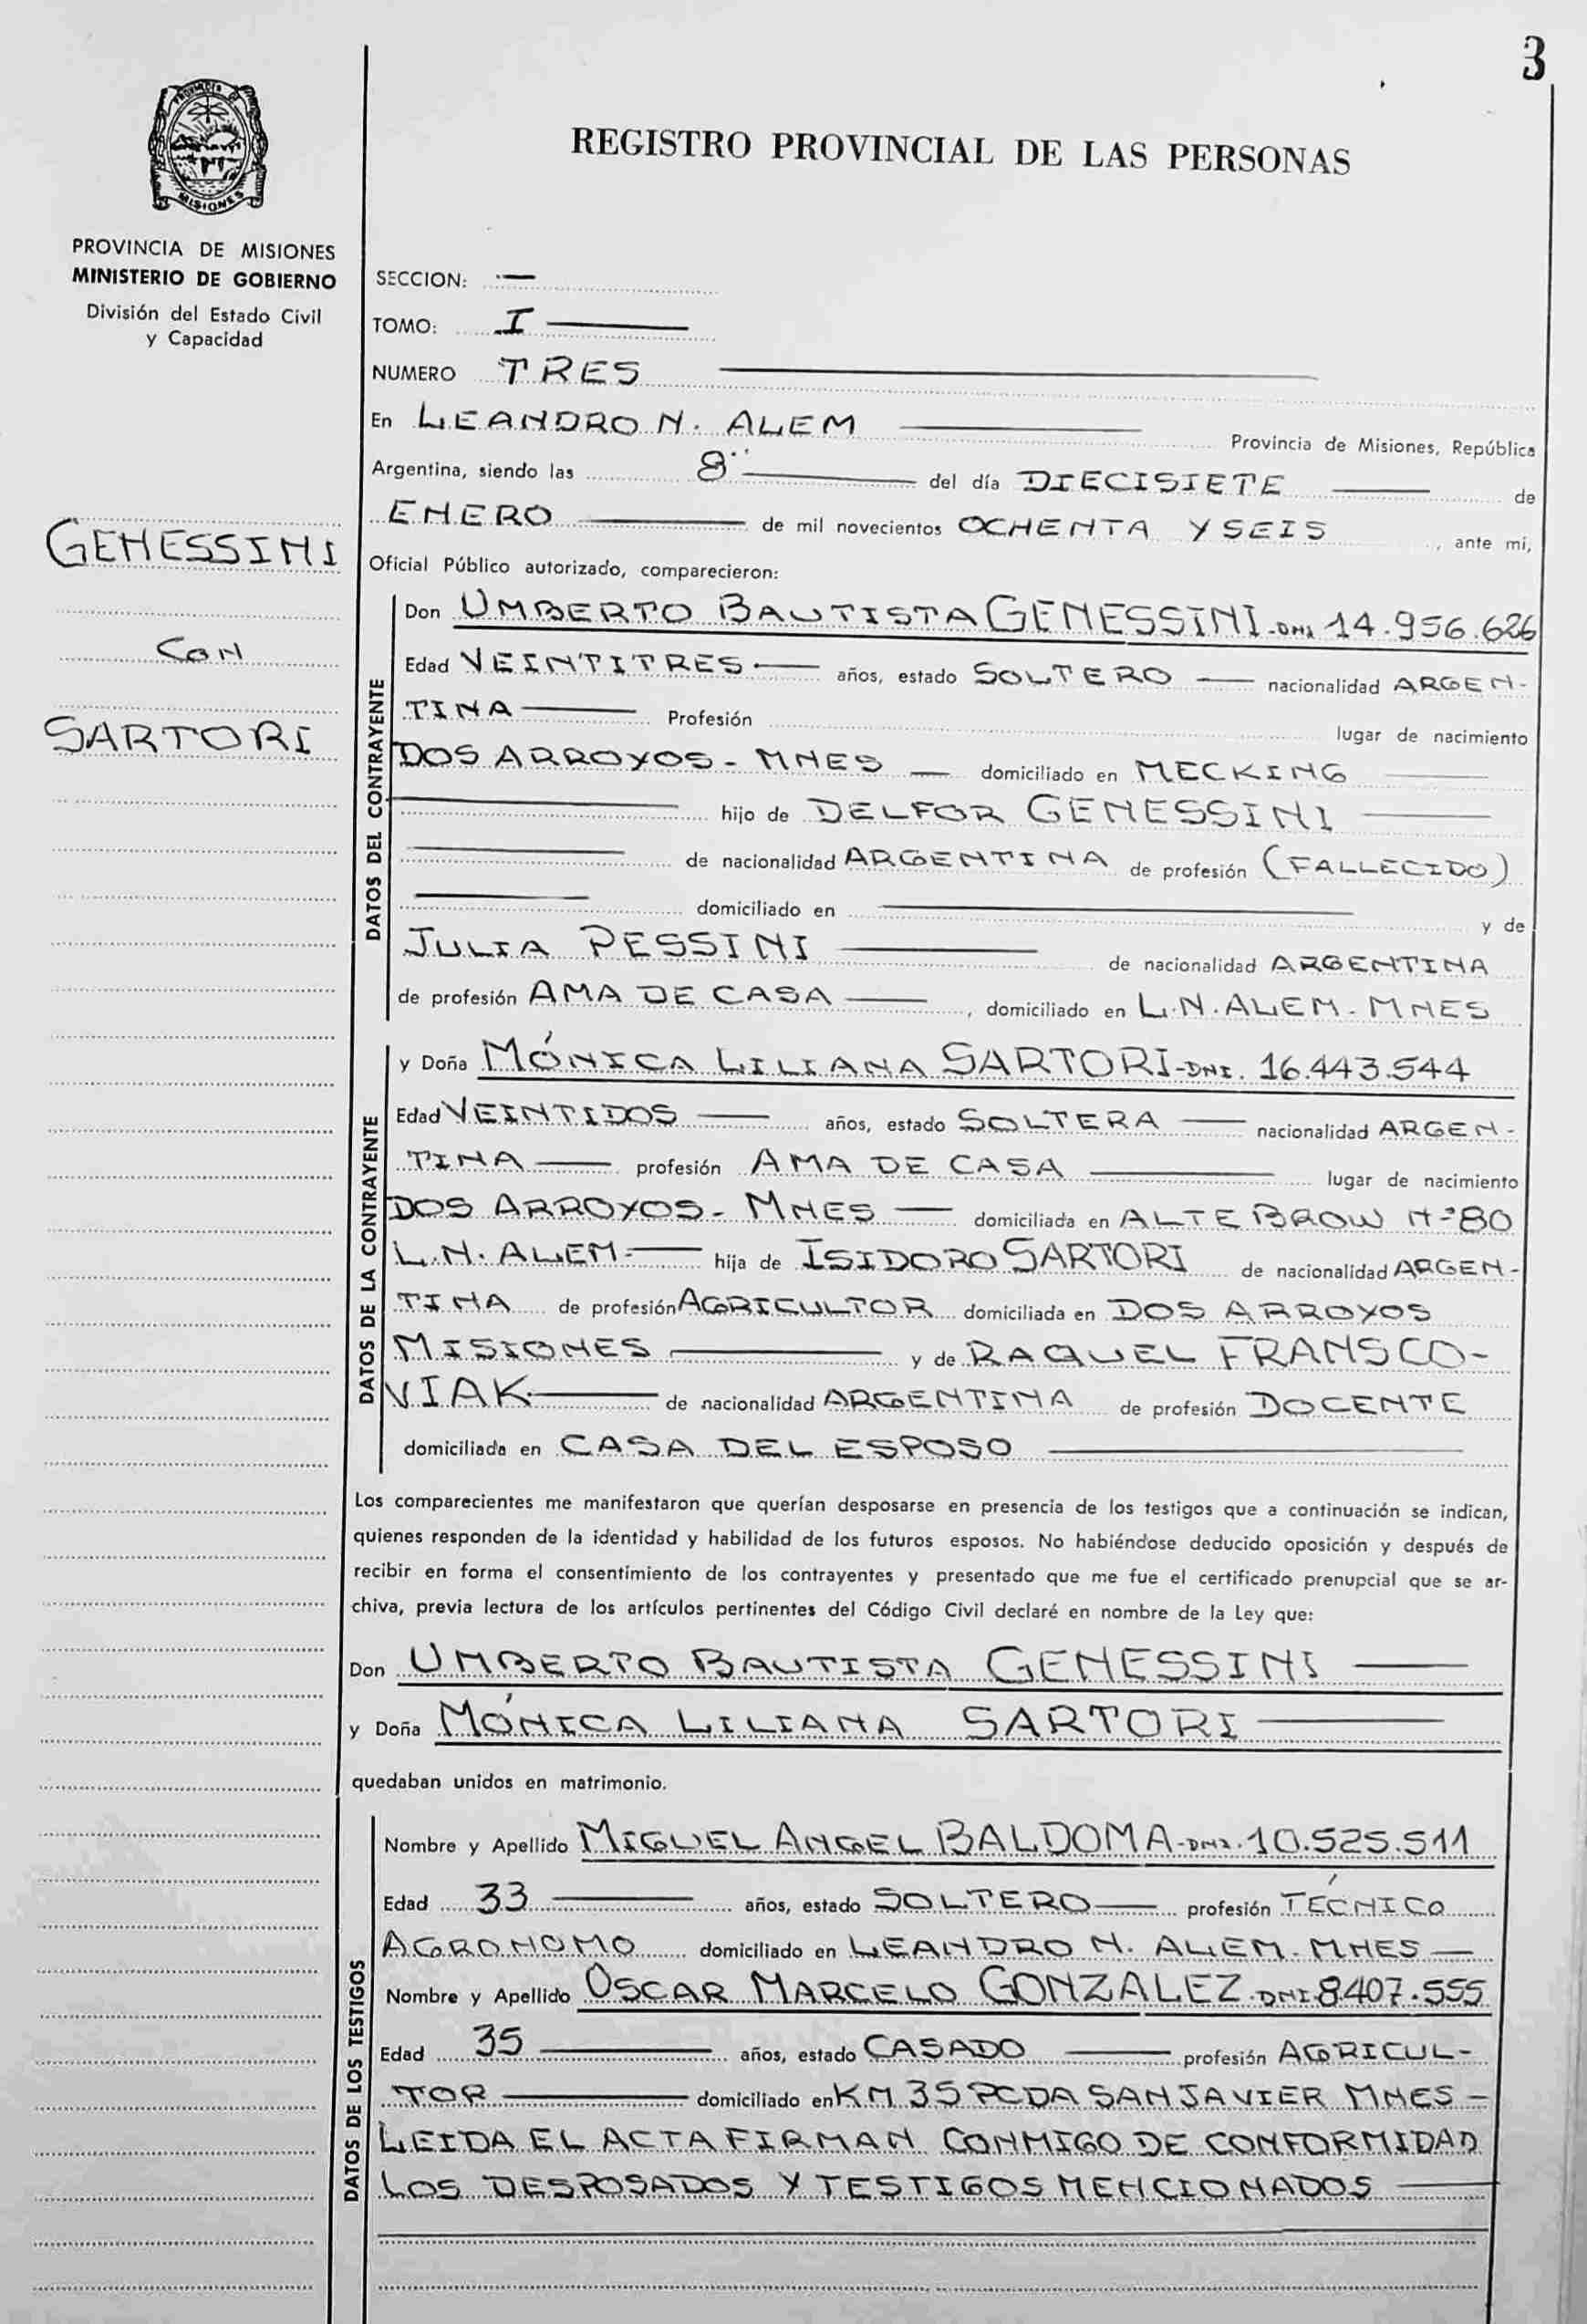 3
PROVINCIA DE
MISIONES
REGISTRO PROVINCIAL DE LAS PERSONAS
PROVINCIA DE MISIONES
MINISTERIO DE GOBIERNO
División del Estado Civil
y Capacidad
GENESSINI
CON
SARTORI
SECCION: —
TOMO: I
NUMERO TRES
En LEANDRO N. ALEM Provincia de Misiones, República
Argentina, siendo las 8 del día DIECISIETE de
ENERO de mil novecientos OCHENTA Y SEIS, ante mí,
Oficial Público autorizado, comparecieron:
DATOS DEL CONTRAYENTE
Don UMBERTO BAUTISTA GENESSINI-DNI 14.956.626
Edad VEINTITRES años, estado SOLTERO nacionalidad ARGEN-
TINA Profesión lugar de nacimiento
DOS ARROYOS- MNES domiciliado en MECKING
hijo de DELFOR GENESSINI
de nacionalidad ARGENTINA de profesión (FALLECIDO)
domiciliado en y de
JULIA PESSINI de nacionalidad ARGENTINA
de profesión AMA DE CASA, domiciliado en L.N.ALEM- MNES
DATOS DE LA CONTRAYENTE
y Doña MÓNICA LILIANA SARTORI-DNI. 16.443.544
Edad VEINTIDOS años, estado SOLTERA nacionalidad ARGEN-
TINA profesión AMA DE CASA lugar de nacimiento
DOS ARROYOS- MNES domiciliada en ALTE BROW Nº80
L.N.ALEM- hija de ISIDORO SARTORI de nacionalidad ARGEN-
TINA de profesión AGRICULTOR domiciliada en DOS ARROYOS
MISIONES y de RAQUEL FRANSCO-
VIAK de nacionalidad ARGENTINA de profesión DOCENTE
domiciliada en CASA DEL ESPOSO
Los comparecientes me manifestaron que querían desposarse en presencia de los testigos que a continuación se indican,
quienes responden de la identidad y habilidad de los futuros esposos. No habiéndose deducido oposición y después de
recibir en forma el consentimiento de los contrayentes y presentado que me fue el certificado prenupcial que se ar-
chiva, previa lectura de los artículos pertinentes del Código Civil declaré en nombre de la Ley que:
Don UMBERTO BAUTISTA GENESSINI
y Doña MÓNICA LILIANA SARTORI
quedaban unidos en matrimonio.
DATOS DE LOS TESTIGOS
Nombre y Apellido MIGUEL ANGEL BALDOMA-DNI.10.525.511
Edad 33 años, estado SOLTERO profesión TÉCNICO
AGRONOMO domiciliado en LEANDRO N. ALEM- MNES
Nombre y Apellido OSCAR MARCELO GONZALEZ DNI 8407.555
Edad 35 años, estado CASADO profesión AGRICUL-
TOR domiciliado en KM 35 PCDA SAN JAVIER MNES-
LEIDA EL ACTA FIRMAN CONMIGO DE CONFORMIDAD
LOS DESPOSADOS Y TESTIGOS MENCIONADOS